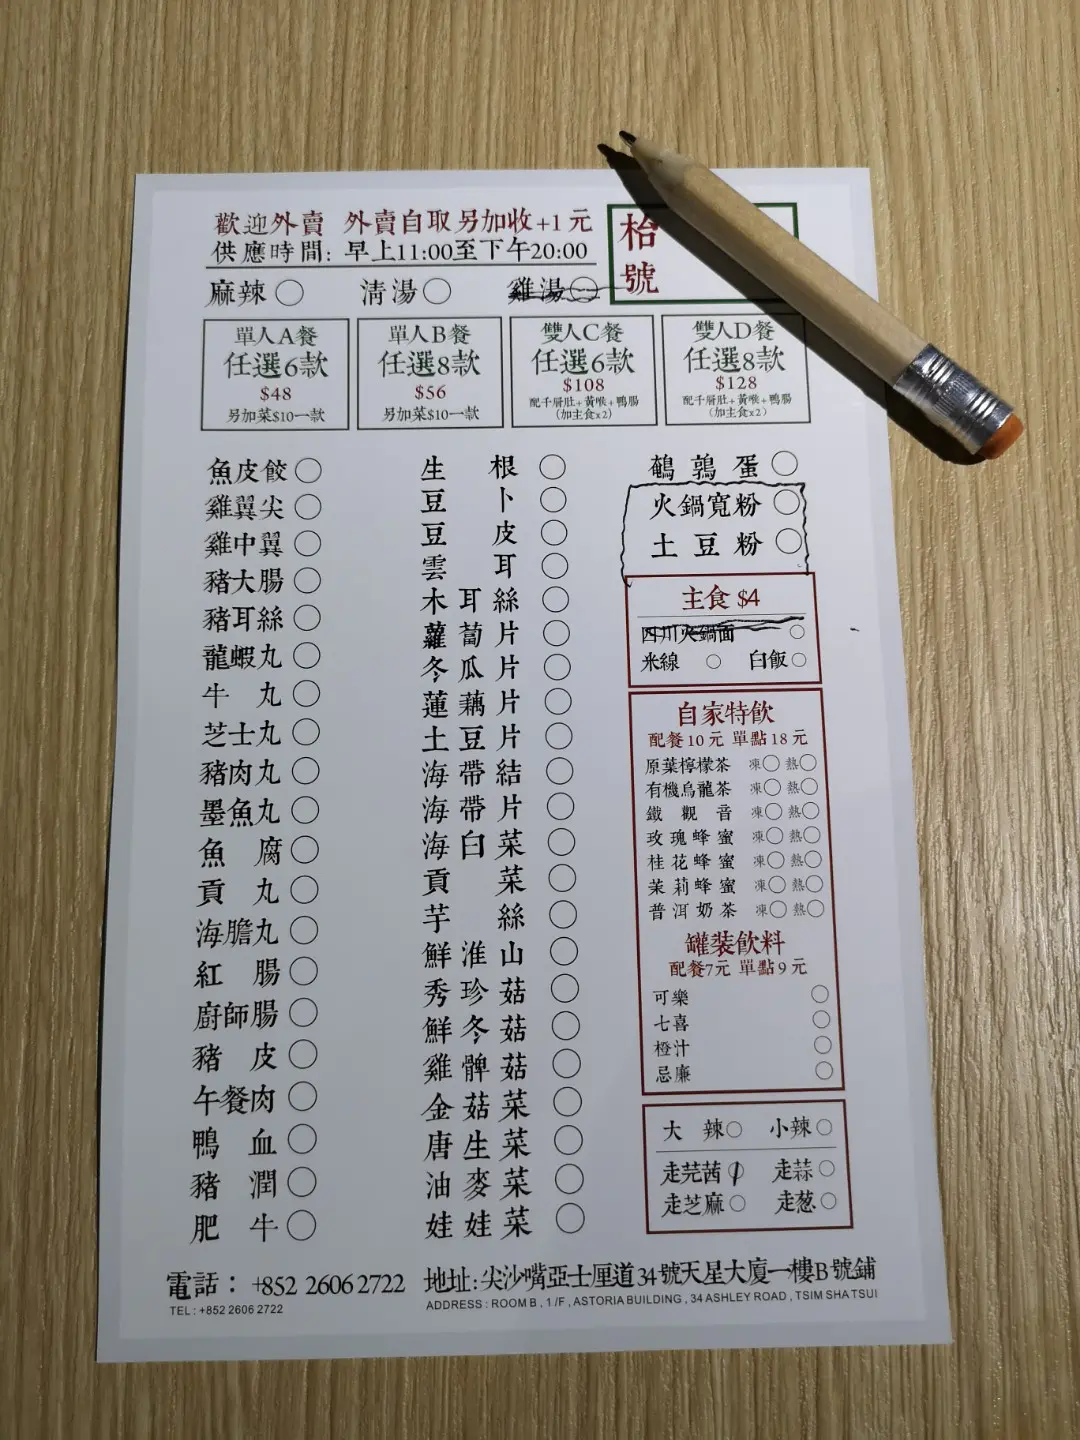 歡迎外賣 外賣自取另加收+1元
供應時間: 早上11:00至下午20:00
枱
號
麻辣 清湯 雞湯
單人A餐
任選6款
$48
另加菜$10一款
單人B餐
任選8款
$56
另加菜$10一款
雙人C餐
任選6款
$108
配千層肚+黃喉+鴨腸
(加主食x2)
雙人D餐
任選8款
$128
配千層肚+黃喉+鴨腸
(加主食x2)
魚皮餃
雞翼尖
雞中翼
豬大腸
豬耳絲
龍蝦丸
牛丸
芝士丸
豬肉丸
墨魚丸
魚腐
貢丸
海膽丸
紅腸
廚師腸
豬皮
午餐肉
鴨血
豬潤
肥牛
生根
豆卜
豆皮
雲耳
木耳絲
蘿蔔片
冬瓜片
蓮藕片
土豆片
海帶結
海帶片
海白菜
貢菜
芋絲
鮮淮山
秀珍菇
鮮冬菇
雞髀菇
金菇菜
唐生菜
油麥菜
娃娃菜
鵪鶉蛋
火鍋寬粉
土豆粉
主食 $4
四川火鍋面
米線 白飯
自家特飲
配餐10元 單點18元
原葉檸檬茶 凍 熱
有機烏龍茶 凍 熱
鐵觀音 凍 熱
玫瑰蜂蜜 凍 熱
桂花蜂蜜 凍 熱
茉莉蜂蜜 凍 熱
普洱奶茶 凍 熱
罐装飲料
配餐7元 單點9元
可樂
七喜
橙汁
忌廉
大辣 小辣
走芫茜 走蒜
走芝麻 走葱
電話: +852 2606 2722
TEL : +852 2606 2722
地址:尖沙嘴亞士厘道34號天星大廈一樓B號鋪
ADDRESS : ROOM B , 1 /F , ASTORIA BUILDING , 34 ASHLEY ROAD , TSIM SHA TSUI